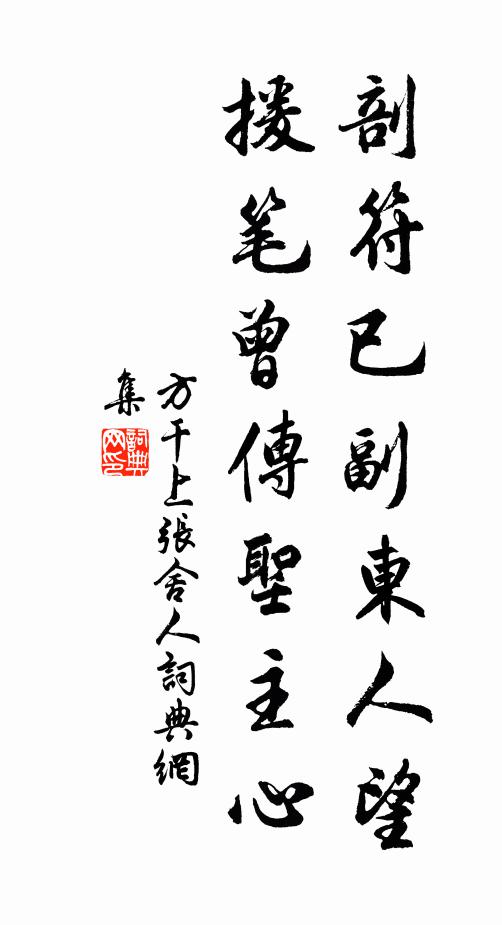 剖符已副東人望
援笔曾傳聖主心
方干上張舍人詞典網
集
詞典
网印